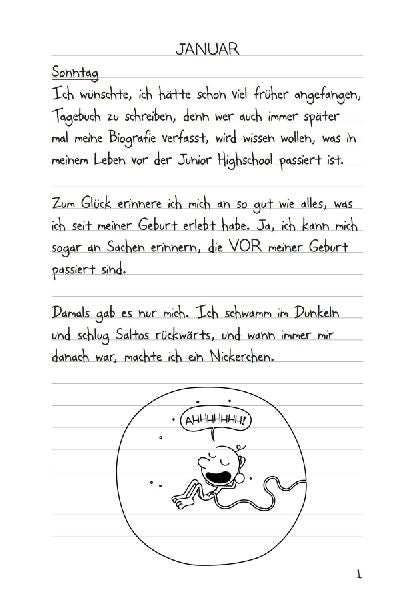 JANUAR
Sonntag
Ich wünschte, ich hätte schon viel früher angefangen,
Tagebuch zu schreiben, denn wer auch immer später
mal meine Biografie verfasst, wird wissen wollen, was in
meinem Leben vor der Junior Highschool passiert ist.
Zum Glück erinnere ich mich an so gut wie alles, was
ich seit meiner Geburt erlebt habe. Ja, ich kann mich
sogar an Sachen erinnern, die VOR meiner Geburt
passiert sind.
Damals gab es nur mich. Ich schwamm im Dunkeln
und schlug Saltos rückwärts, und wann immer mir
danach war, machte ich ein Nickerchen.
AHHHHHH!
1